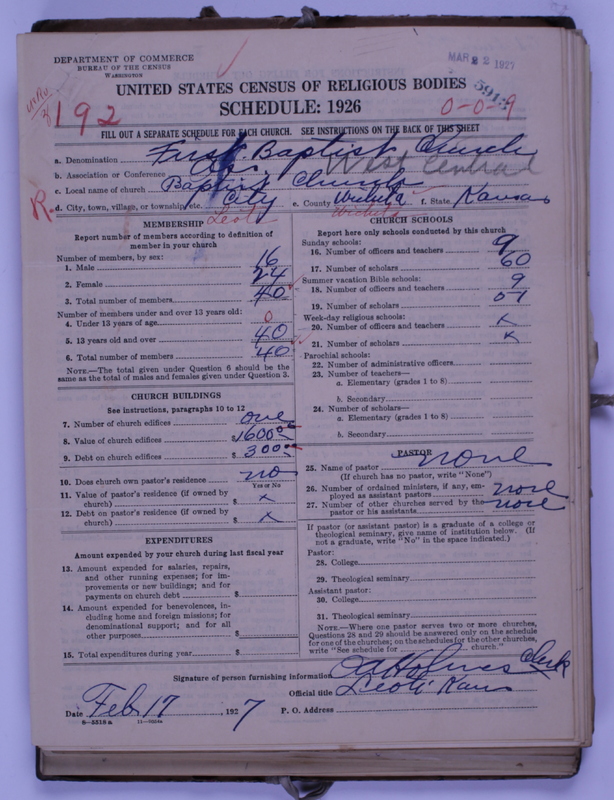 DEPARTMENT OF COMMERCE
BUREAU OF THE CENSUS
WASHINGTON
MAR 22 1927
5913
UNITED STATES CENSUS OF RELIGIOUS BODIES
SCHEDULE: 1926
192
0-0-9
FILL OUT A SEPARATE SCHEDULE FOR EACH CHURCH. SEE INSTRUCTIONS ON THE BACK OF THIS SHEET
a. Denomination First Baptist Church
b. Association or Conference West Central
c. Local name of church Baptist Church
d. City, town, village, or township, etc. City e. County Wichita f. State Kansas
R. Leoti Wichita
MEMBERSHIP
Report number of members according to definition of
member in your church
Number of members, by sex:
1. Male 16
2. Female 24
3. Total number of members 40
Number of members under and over 13 years old:
4. Under 13 years of age 0
5. 13 years old and over 40
6. Total number of members 40
NOTE.—The total given under Question 6 should be the
same as the total of males and females given under Question 3.
CHURCH BUILDINGS
See instructions, paragraphs 10 to 12
7. Number of church edifices one
8. Value of church edifices $1600
9. Debt on church edifices $300
10. Does church own pastor's residence no
Yes or No
11. Value of pastor's residence (if owned by
church) $ x
12. Debt on pastor's residence (if owned by
church) $ x
EXPENDITURES
Amount expended by your church during last fiscal year
13. Amount expended for salaries, repairs,
and other running expenses; for im-
provements or new buildings; and for
payments on church debt $
14. Amount expended for benevolences, in-
cluding home and foreign missions; for
denominational support; and for all
other purposes $
15. Total expenditures during year $
CHURCH SCHOOLS
Report here only schools conducted by this church
Sunday schools:
16. Number of officers and teachers 9
17. Number of scholars 60
Summer vacation Bible schools:
18. Number of officers and teachers 9
19. Number of scholars 51
Week-day religious schools:
20. Number of officers and teachers x
21. Number of scholars x
Parochial schools:
22. Number of administrative officers
23. Number of teachers—
a. Elementary (grades 1 to 8)
b. Secondary
24. Number of scholars—
a. Elementary (grades 1 to 8)
b. Secondary
PASTOR
25. Name of pastor none
(If church has no pastor, write "None")
26. Number of ordained ministers, if any, em-
ployed as assistant pastors none
27. Number of other churches served by the
pastor or his assistants none
If pastor (or assistant pastor) is a graduate of a college or
theological seminary, give name of institution below. (If
not a graduate, write "No" in the space indicated.)
Pastor:
28. College
29. Theological seminary
Assistant pastor:
30. College
31. Theological seminary
NOTE.—Where one pastor serves two or more churches,
Questions 28 and 29 should be answered only on the schedule
for one of the churches; on the schedules for the other churches,
write "See schedule for church."
Signature of person furnishing information Holmes Clerk
Official title Leoti Kans
Date Feb 17, 1927 P. O. Address
8-5318a 11-9034a